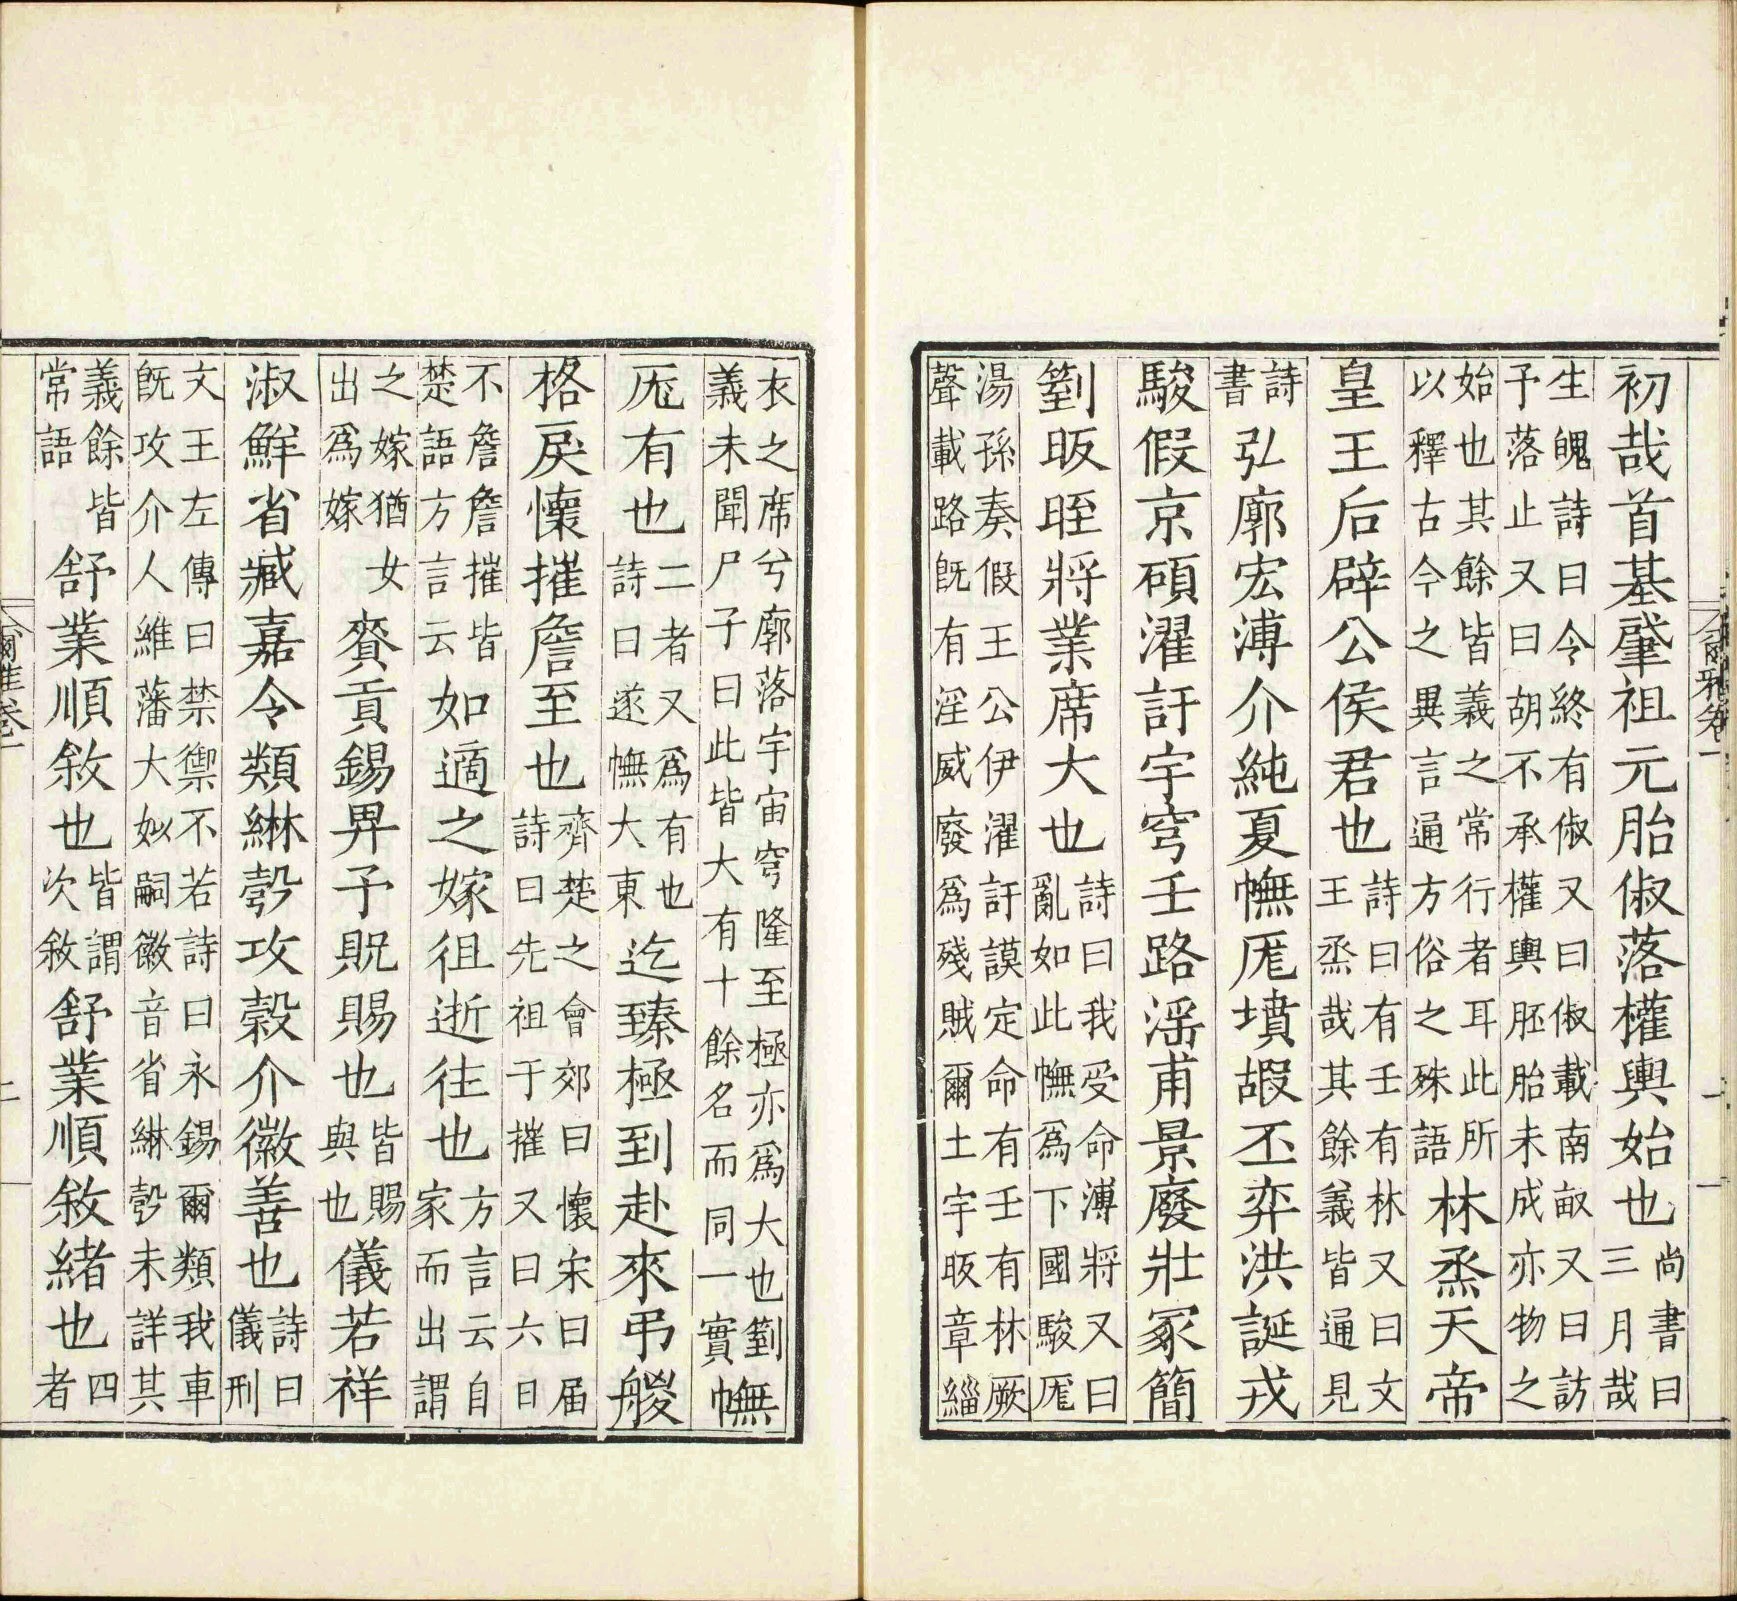 爾雅卷一
一
初哉首基肇祖元胎俶落權輿始也
尚書曰
三月哉
生魄詩曰令終有俶又曰俶載南畝又曰訪
予落止又曰胡不承權輿胚胎未成亦物之
始也其餘皆義之常行者耳此所
以釋古今之異言通方俗之殊語
林烝天帝
皇王后辟公侯君也
詩曰有壬有林又曰文
王烝哉其餘義皆通見
詩
書
弘廓宏溥介純夏幠厖墳嘏丕弈洪誕戎
駿假京碩濯訏宇穹壬路淫甫景廢壯冢簡
箌昄晊將業席大也
詩曰我受命溥將又曰
亂如此幠爲下國駿厖
湯孫奏假王公伊濯訏謨定命有壬有林厥
聲載路既有淫威廢爲殘賊爾土宇昄章緇
衣之席兮廓落宇宙穹隆至極亦爲大也箌
義未聞尸子曰此皆大有十餘名而同一實
幠
厖有也
二者又爲有也
詩曰遂幠大東
迄臻極到赴來弔艐
格戾懷摧詹至也
齊楚之會郊曰懷宋曰届
詩曰先祖于摧又曰六日
不詹詹摧皆
楚語方言云
如適之嫁徂逝往也
方言云自
家而出謂
之嫁猶女
出爲嫁
賚貢錫畀予貺賜也
皆賜
與也
儀若祥
淑鮮省臧嘉令類綝彀攻穀介徽善也
詩曰
儀刑
文王左傳曰禁禦不若詩曰永錫爾類我車
既攻介人維藩大姒嗣徽音省綝彀未詳其
義餘皆
常語
舒業順敘也
皆謂
次敘
舒業順敘緒也
四
者
爾雅卷一
二